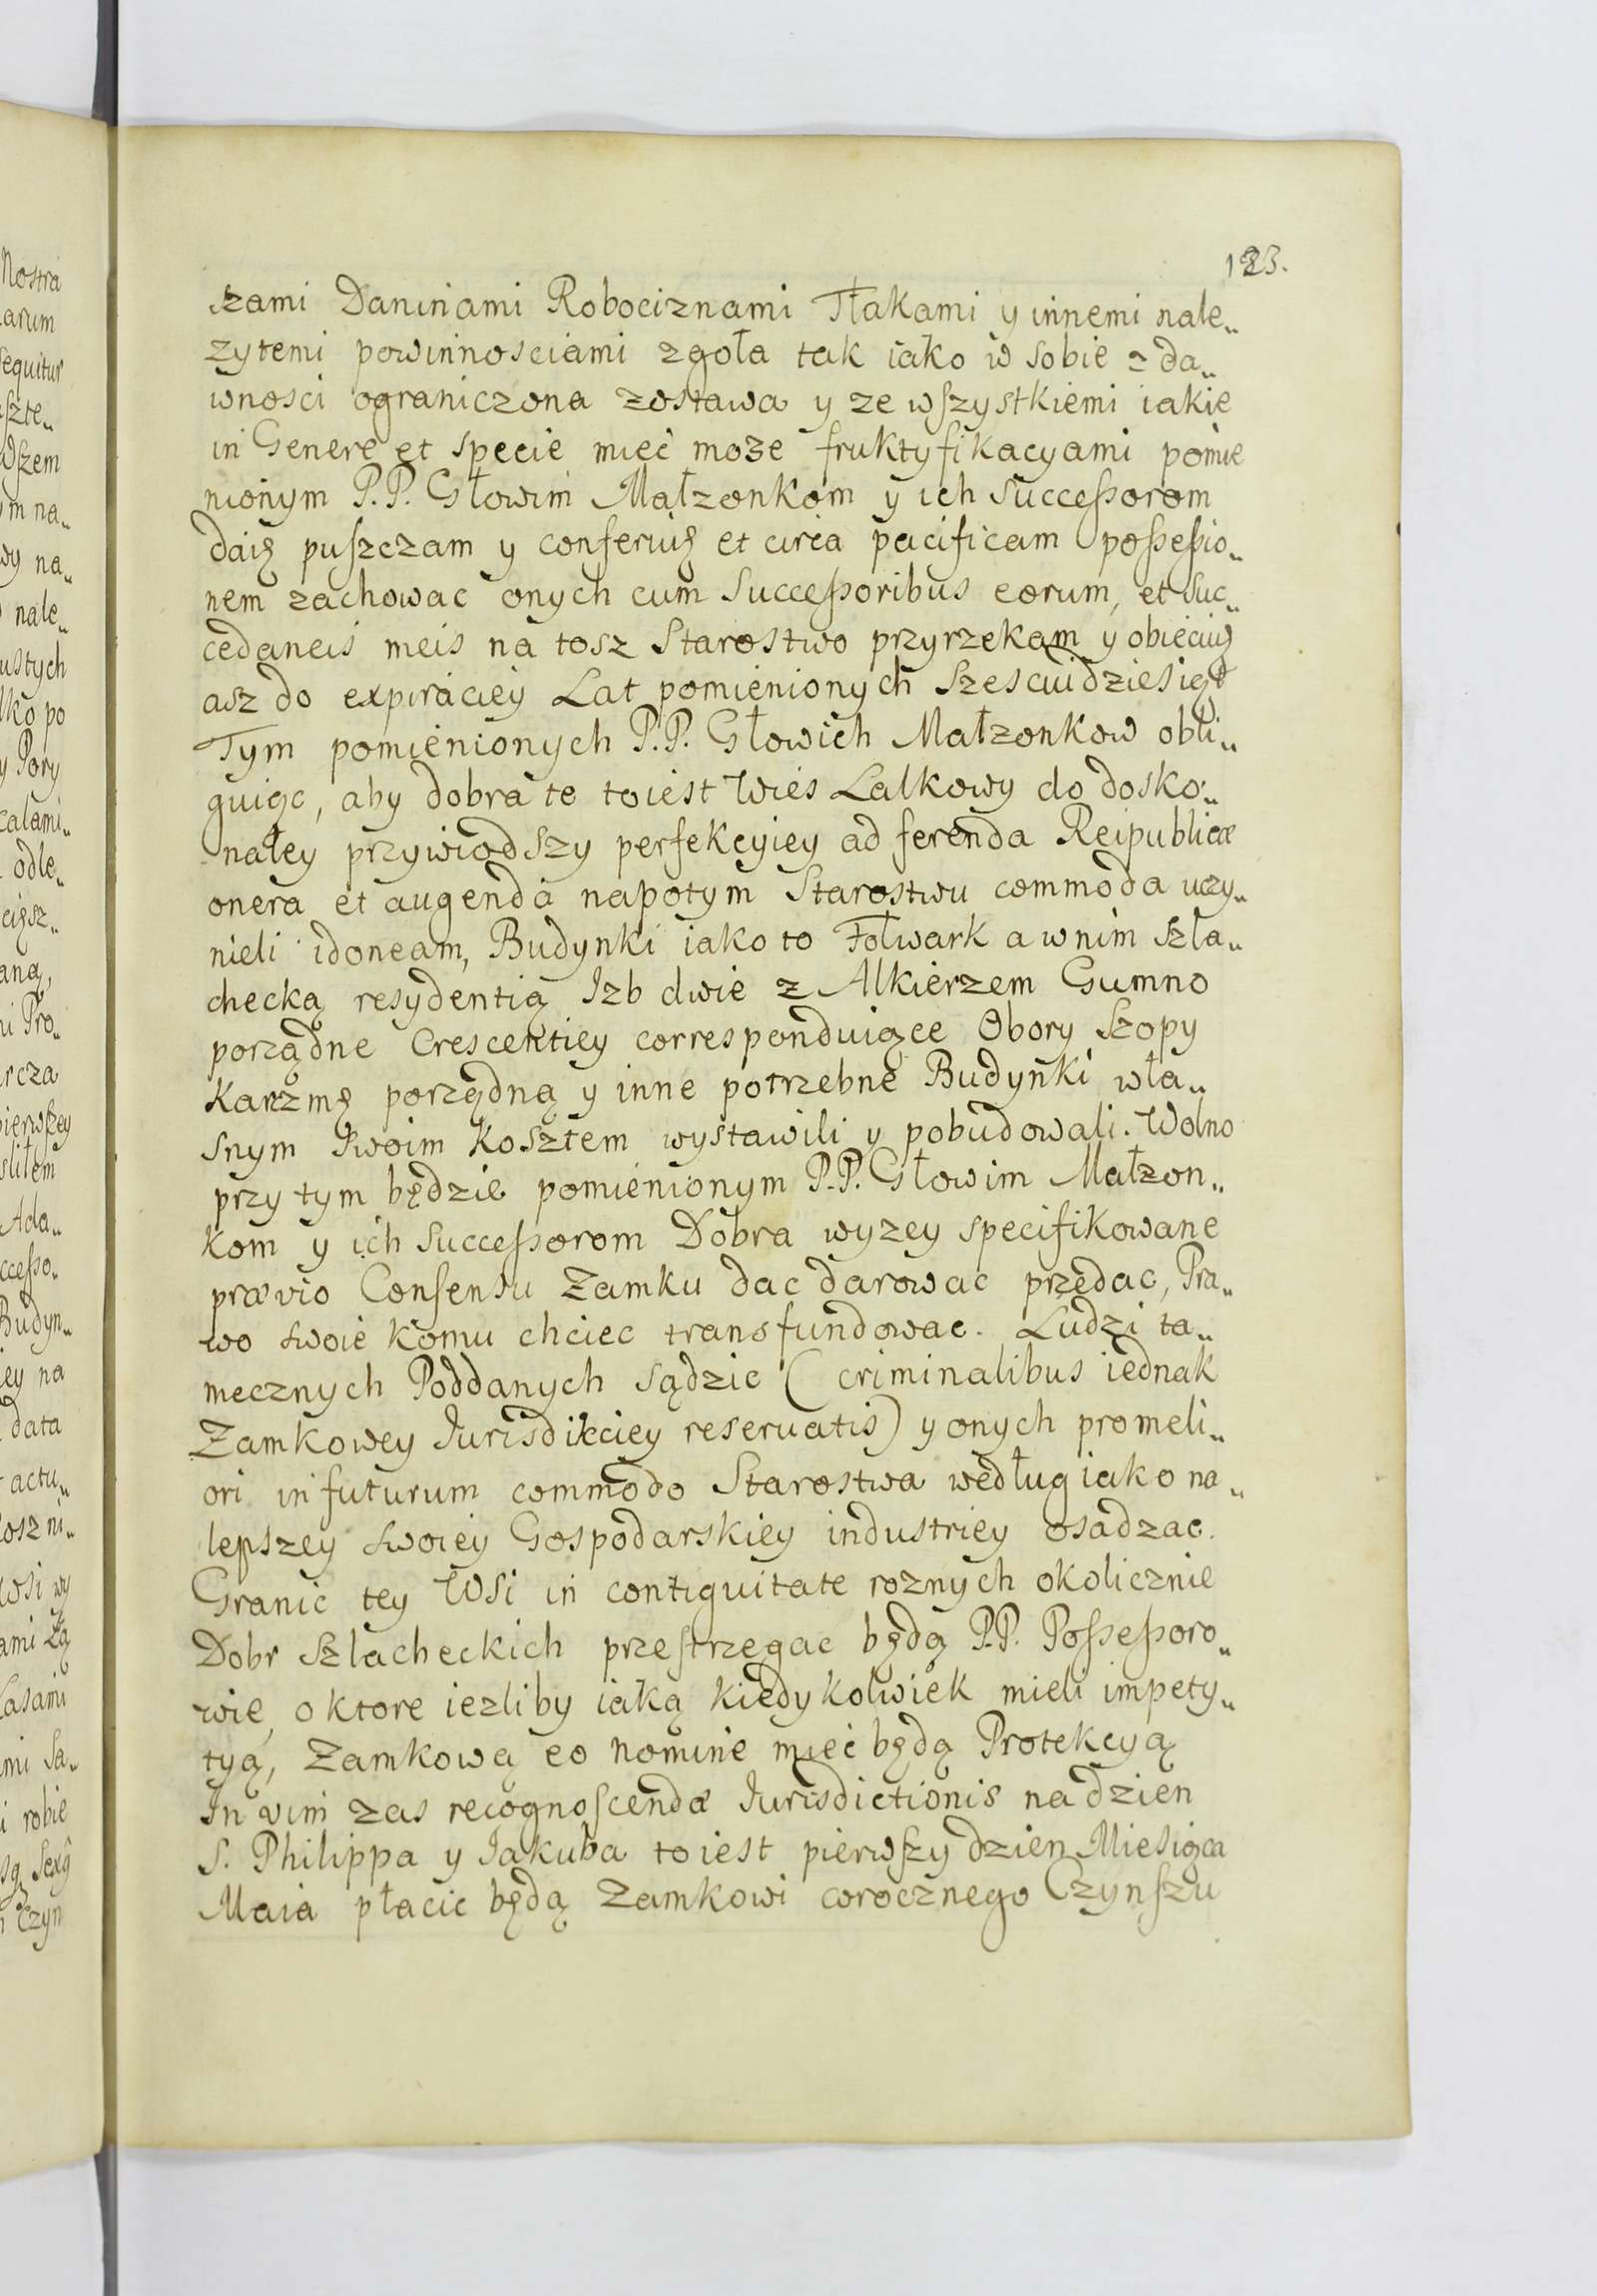 123.
szami Daninami Robociznami Tłakami y innemi nale„
zytemi powinnosciami zgoła tak iako w sobie z da„
wnosci ograniczona zostawa y ze wszystkiemi iakie
in Genere et specie mieć może fruktyfikacyami pomie
nionym P.P. Głowim Małzonkom y ich Successorom
daię puszczam y conferuię et circa pacificam possessio„
nem zachować onych cum Successoribus eorum, et suc„
cedaneis meis na tosz Starostwo przyrzekam y obiecuię
asz do expiraciey Lat pomienionych Szesciudziesiąt
Tym pomienionych P.P. Głowich Małzonkow obli„
guiąc, aby dobra te toiest Wies Lalkowy do dosko„
nałey przywiodszy perfekcyiey ad ferenda Reipublicæ
onera et augenda napotym Starostwu commoda uczy„
nieli idoneam, Budynki iako to Folwark a wnim szla„
checką resydentią Izb dwie z Alkierzem Gumno
porządne Crescentiey correspenduiące Obory Szopy
Karzmę porządną y inne potrzebne Budynki wła„
snym swoim Kosztem wystawili y pobudowali. Wolno
przy tym będzie pomienionym P.P. Głowim Małzon„
kom y ich Successorom Dobra wyzey specifikowane
prævio Consensu Zamku dac darowac przedac, Pra„
wo swoie komu chciec transfundowac. Ludzi ta„
mecznych Poddanych sądzic (criminalibus iednak
Zamkowey Iurisdikciey reseruatis) y onych pro meli„
ori in futurum commodo Starostwa według iako na„
lepszey swoiey Gospodarskiey industriey osadzac.
Granic tey Wsi in contiguitate roznych okolicznie
Dobr Szlacheckich przestrzegac będą P.P. Possessoro„
wie, o ktore iezliby iaką kiedykolwiek mieli impety„
tyą, Zamkową eo nomine mieć będą Protekcyą
In vim zas recognoscendæ Iurisdictionis na dzien
S. Philippa y Iakuba toiest pierwszy dzien Miesiąca
Maia płacic będą Zamkowi corocznego Czynszu